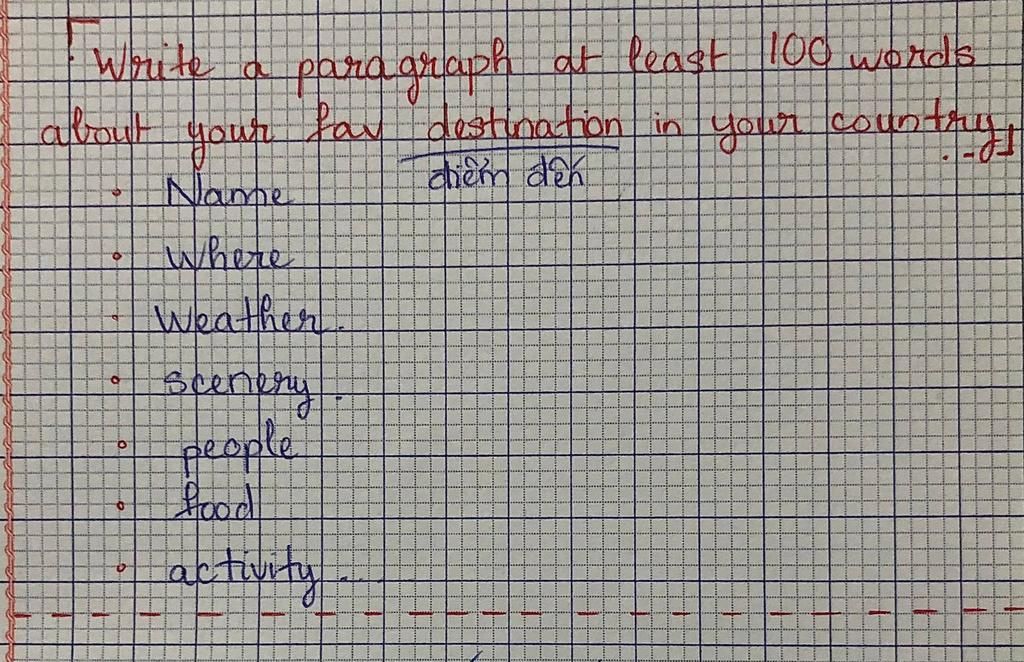 Write a paragraph at least 100 words
about your fav destination in your country...
điểm đến
• Name
• Where
• Weather.
• scenery.
• people
• food
• activity...